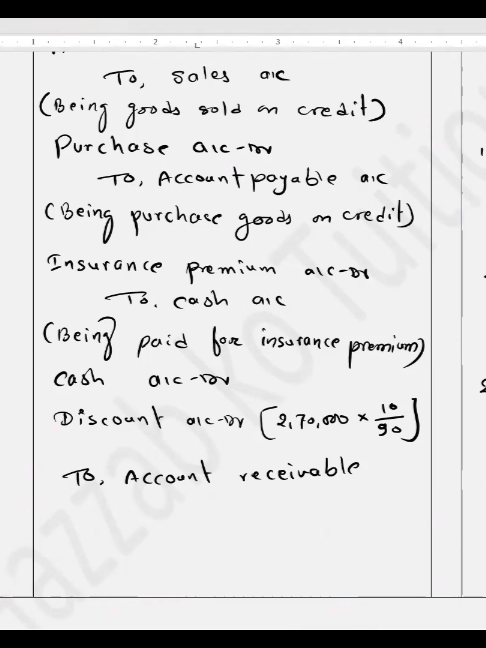 1 2 3 4
To, Sales a/c
(Being goods sold on credit)
Purchase a/c-Dr
To, Account payable a/c
(Being purchase goods on credit)
Insurance premium a/c-Dr
To. cash a/c
(Being paid for insurance premium)
cash a/c-Dr
Discount a/c-Dr [2,70,000 × 10/90]
To, Account receivable